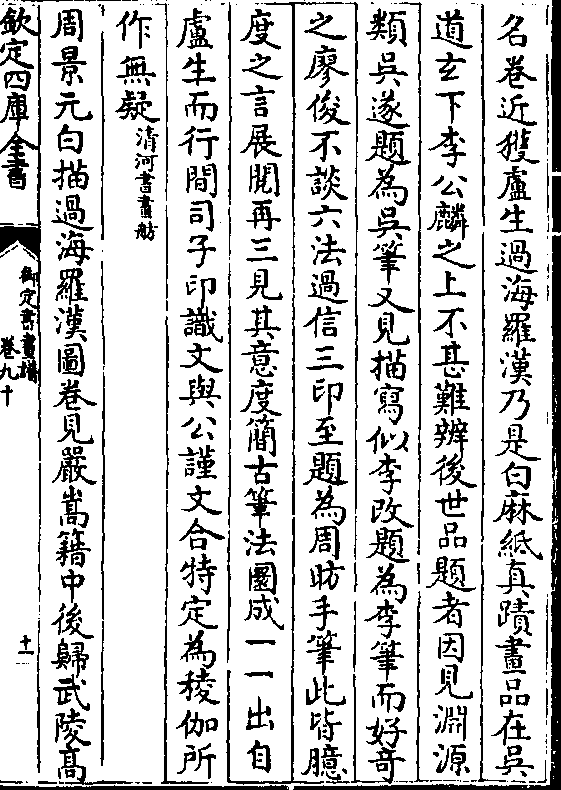 名卷近獲盧生過海羅漢乃是白麻紙真蹟畫品在吳
道玄下李公麟之上不甚難辨後世品題者因見淵源
類吳遂題為吳筆又見描寫似李改題為李筆而好奇
之廖俊不談六法過信三印至題為周昉手筆此皆臆
度之言展閱再三見其意度簡古筆法圜成一一出自
盧生而行間司子印識文與公謹文合特定為稜伽所
作無疑清河書畫舫
周景元白描過海羅漢圖卷見嚴嵩籍中後歸武陵髙
欽定四庫全書
御定書畫譜
卷九十
十一